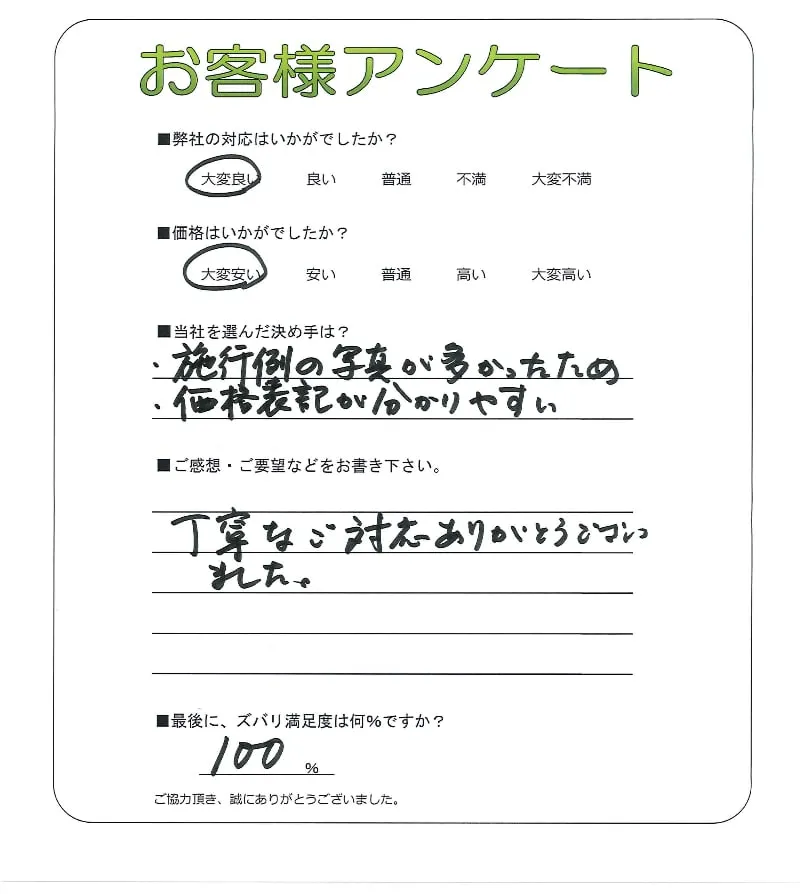 お客様アンケート
■弊社の対応はいかがでしたか？
大変良い 良い 普通 不満 大変不満
■価格はいかがでしたか？
大変安い 安い 普通 高い 大変高い
■当社を選んだ決め手は？
・施行例の写真が多かったため
・価格表記が分かりやすい
■ご感想・ご要望などをお書き下さい。
丁寧なご対応ありがとうござい
ました。
■最後に、ズバリ満足度は何％ですか？
100 %
ご協力頂き、誠にありがとうございました。